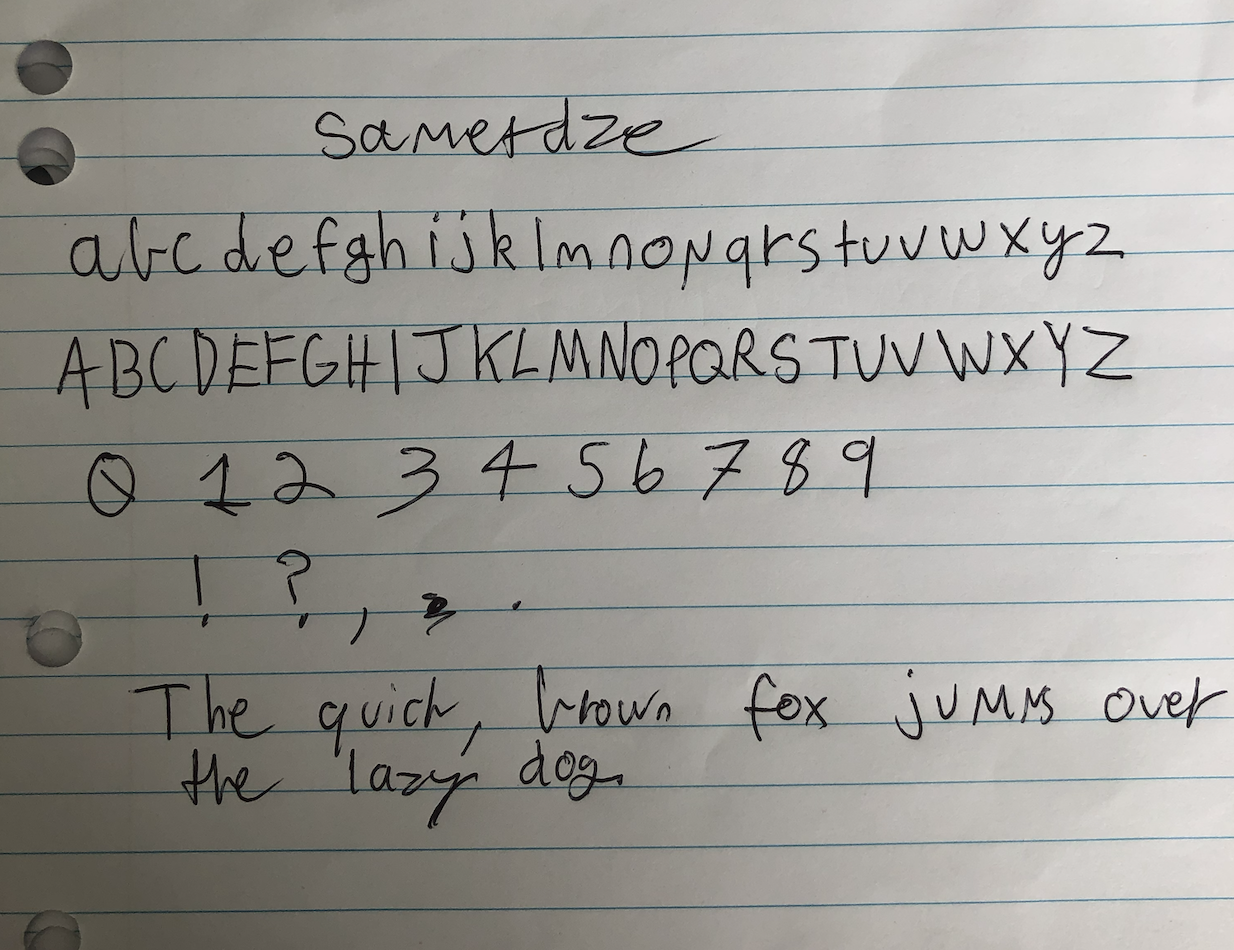 Sametdze
abcdefghijklmnopqrstuvwxyz
ABCDEFGHIJKLMNOPQRSTUVWXYZ
0 1 2 3 4 5 6 7 8 9
! ? , .
The quick, brown fox jumps over
the lazy dog.